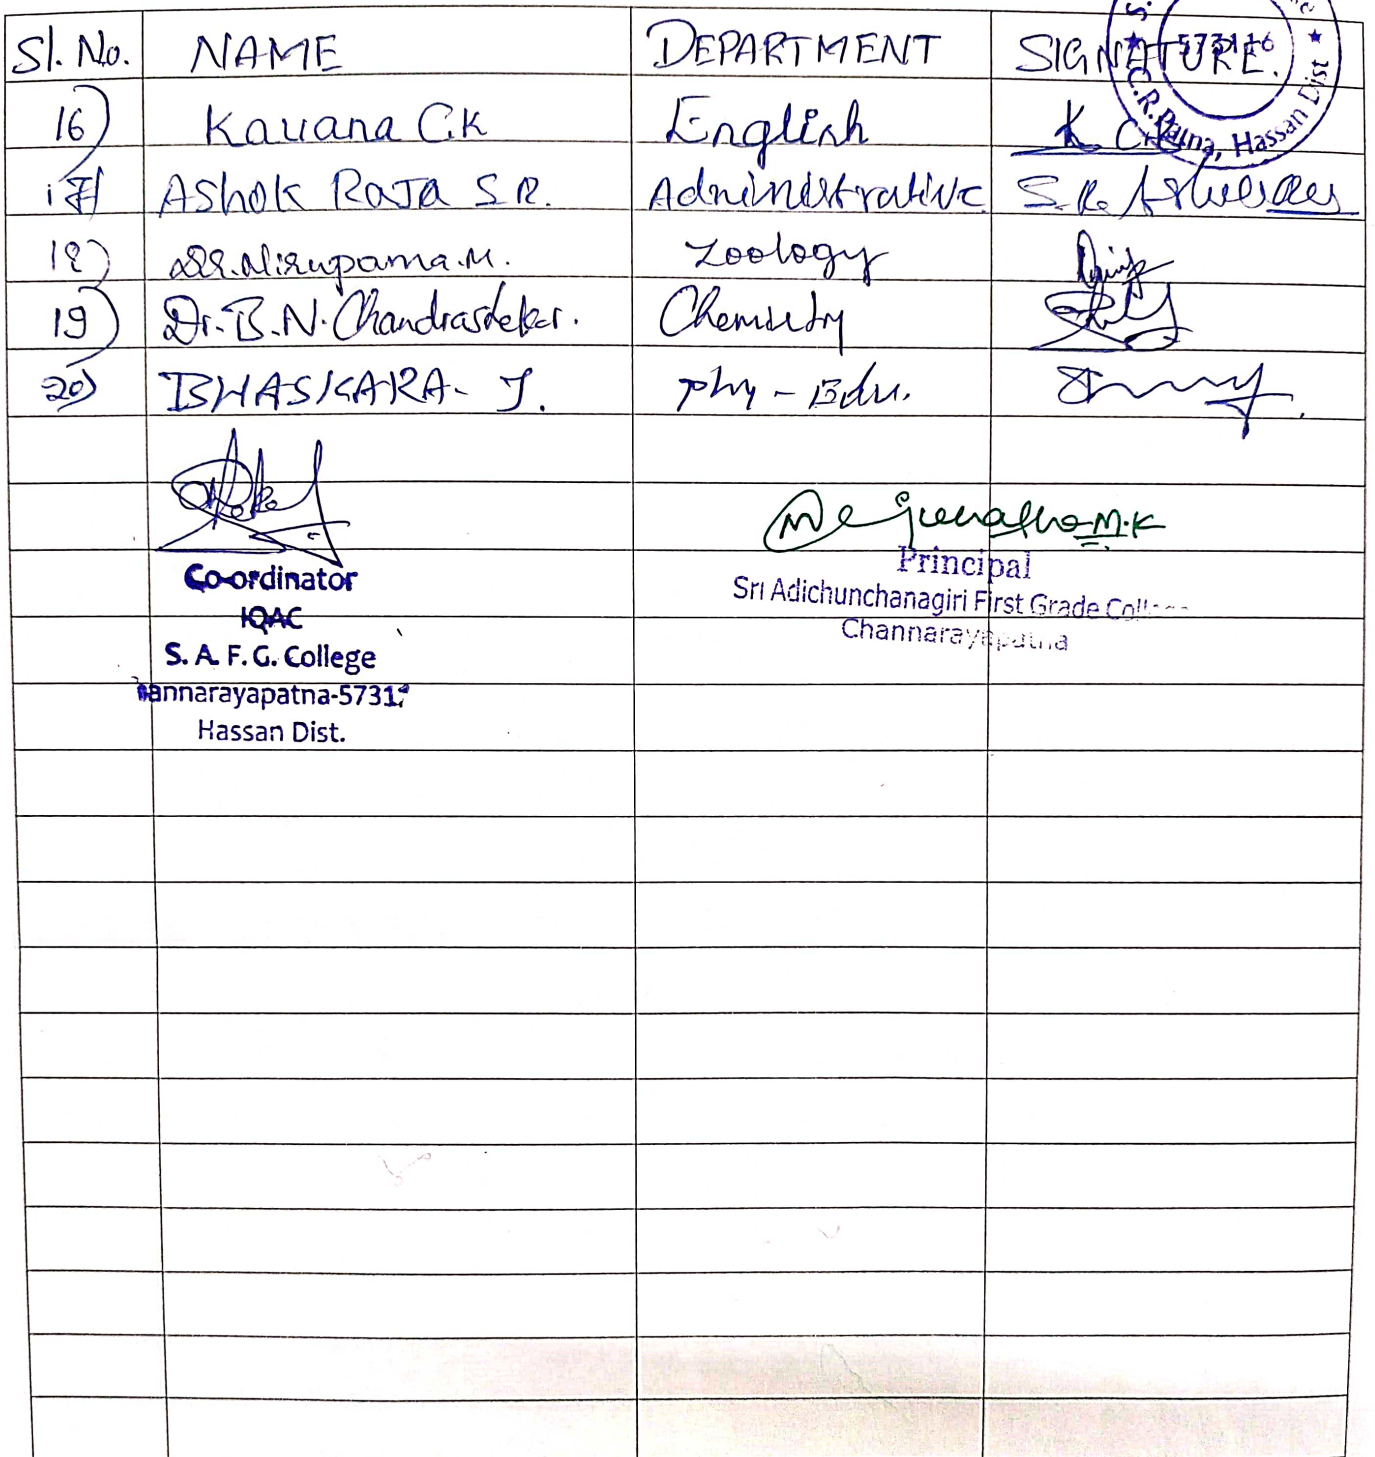 Sl. No. NAME DEPARTMENT SIGNATURE.
573116
C.R.Patna, Hassan Dist
16) Kavana C.K English K C.K
17) Ashok Raja S.R. Administrative S.R.
18) Dr. Nirupama.M. Zoology
19) Dr. B.N. Chandrashekar. Chemistry
20) BHASKARA- J. Phy - Edu.
M.K
Co-ordinator
IQAC
S. A. F. G. College
annarayapatna-5731
Hassan Dist.
Principal
Sri Adichunchanagiri First Grade Coll
Channarayapatna